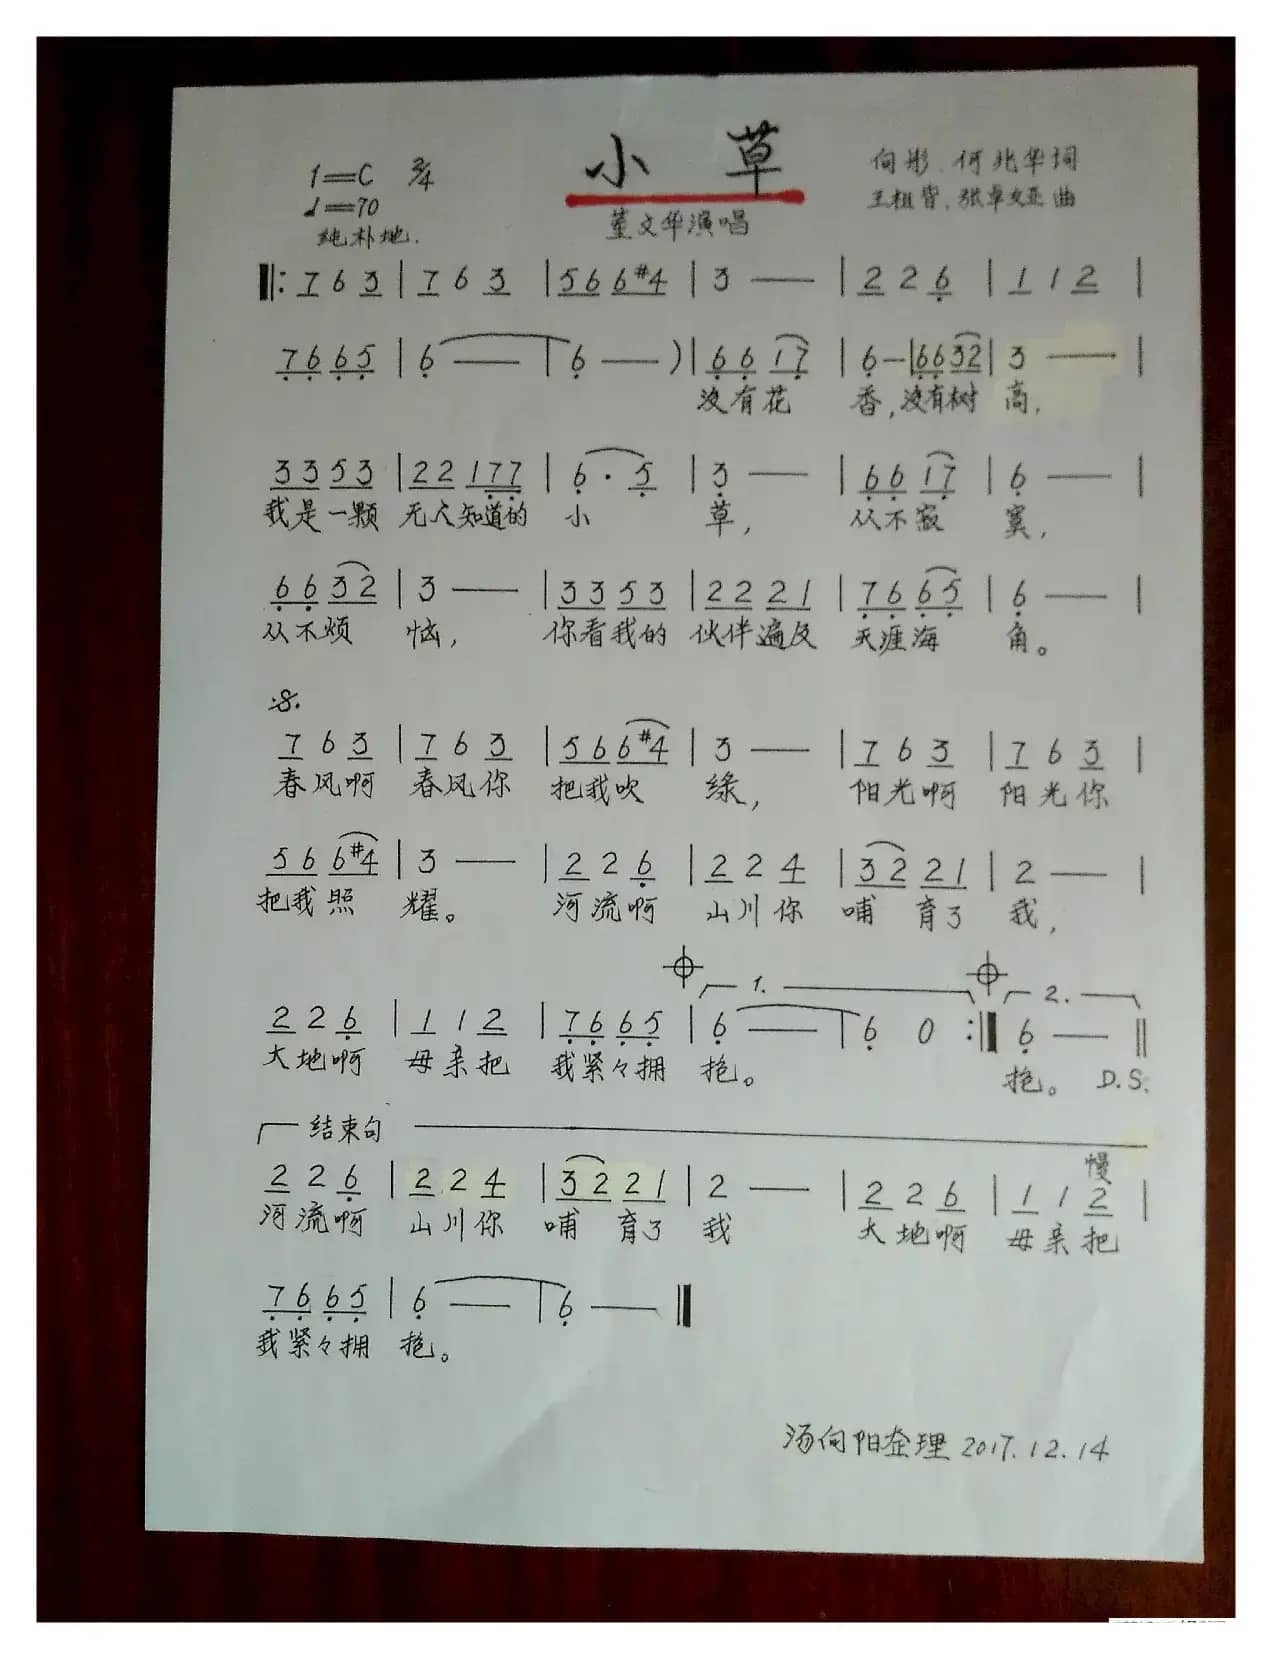 小草
1=C 2/4
♩=70
纯朴地.
董文华演唱
向彤、何兆华词
王祖皆、张卓娅曲
‖: 7 6 3 | 7 6 3 | 5 6 6 #4 | 3 — | 2 2 6 | 1 1 2 |
7 6 6 5 | 6 — | 6 — ) | 6 6 1 7 | 6 — | 6 6 3 2 | 3 — |
没有花 香, 没有树 高,
3 3 5 3 | 2 2 1 7 7 | 6 · 5 | 3 — | 6 6 1 7 | 6 — |
我是一颗 无人知道的 小 草, 从不寂 寞,
6 6 3 2 | 3 — | 3 3 5 3 | 2 2 2 1 | 7 6 6 5 | 6 — |
从不烦 恼, 你看我的 伙伴遍及 天涯海 角。
:S.
7 6 3 | 7 6 3 | 5 6 6 #4 | 3 — | 7 6 3 | 7 6 3 |
春风啊 春风你 把我吹 绿, 阳光啊 阳光你
5 6 6 #4 | 3 — | 2 2 6 | 2 2 4 | 3 2 2 1 | 2 — |
把我照 耀。 河流啊 山川你 哺 育了 我,
1. 2.
2 2 6 | 1 1 2 | 7 6 6 5 | 6 — | 6 0 :‖ 6 — ‖
大地啊 母亲把 我紧々拥 抱。 抱。 D.S.
结束句
慢
2 2 6 | 2 2 4 | 3 2 2 1 | 2 — | 2 2 6 | 1 1 2 |
河流啊 山川你 哺 育了 我 大地啊 母亲把
7 6 6 5 | 6 — | 6 — ‖
我紧々拥 抱。
汤向阳整理 2017.12.14